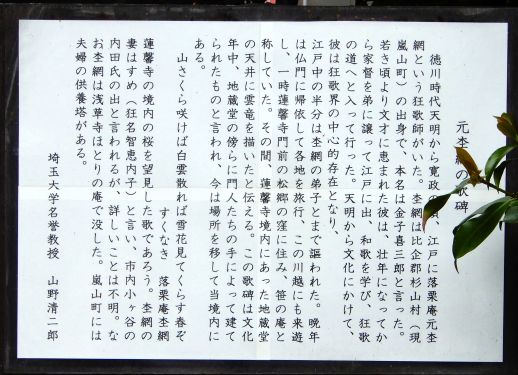 元杢網の歌碑
徳川時代天明から寛政の頃、江戸に落栗庵元杢
網という狂歌師がいた。杢網は比企郡杉山村（現
嵐山町）の出身で、本名は金子喜三郎と言った。
若き頃より文才に恵まれた彼は、壮年になってか
ら家督を弟に譲って江戸に出、和歌を学び、狂歌
の道へと入って行った。天明から文化にかけて、
彼は狂歌界の中心的存在となり、
江戸中の半分は杢網の弟子とまで謳われた。晩年
は仏門に帰依して各地を旅行、この川越にも来遊
し、一時蓮馨寺門前の松郷の窪に住み、笹の庵と
称していた。その間、蓮馨寺境内にあった地蔵堂
の天井に雲竜を描いたと伝える。この歌碑は文化
年中、地蔵堂の傍らに門人たちの手によって建て
られたものと言われ、今は場所を移して当境内に
ある。
山さくら咲けば白雲散れば雪花見てくらす春ぞ
すくなき　落栗庵杢網
蓮馨寺の境内の桜を望見した歌であろう。杢網の
妻はすめ（狂名智恵内子）と言い、市内小ヶ谷の
内田氏の出と言われるが、詳しいことは不明。な
お杢網は浅草寺ほとりの庵で没した。嵐山町には
夫婦の供養塔がある。
埼玉大学名誉教授　山野清二郎